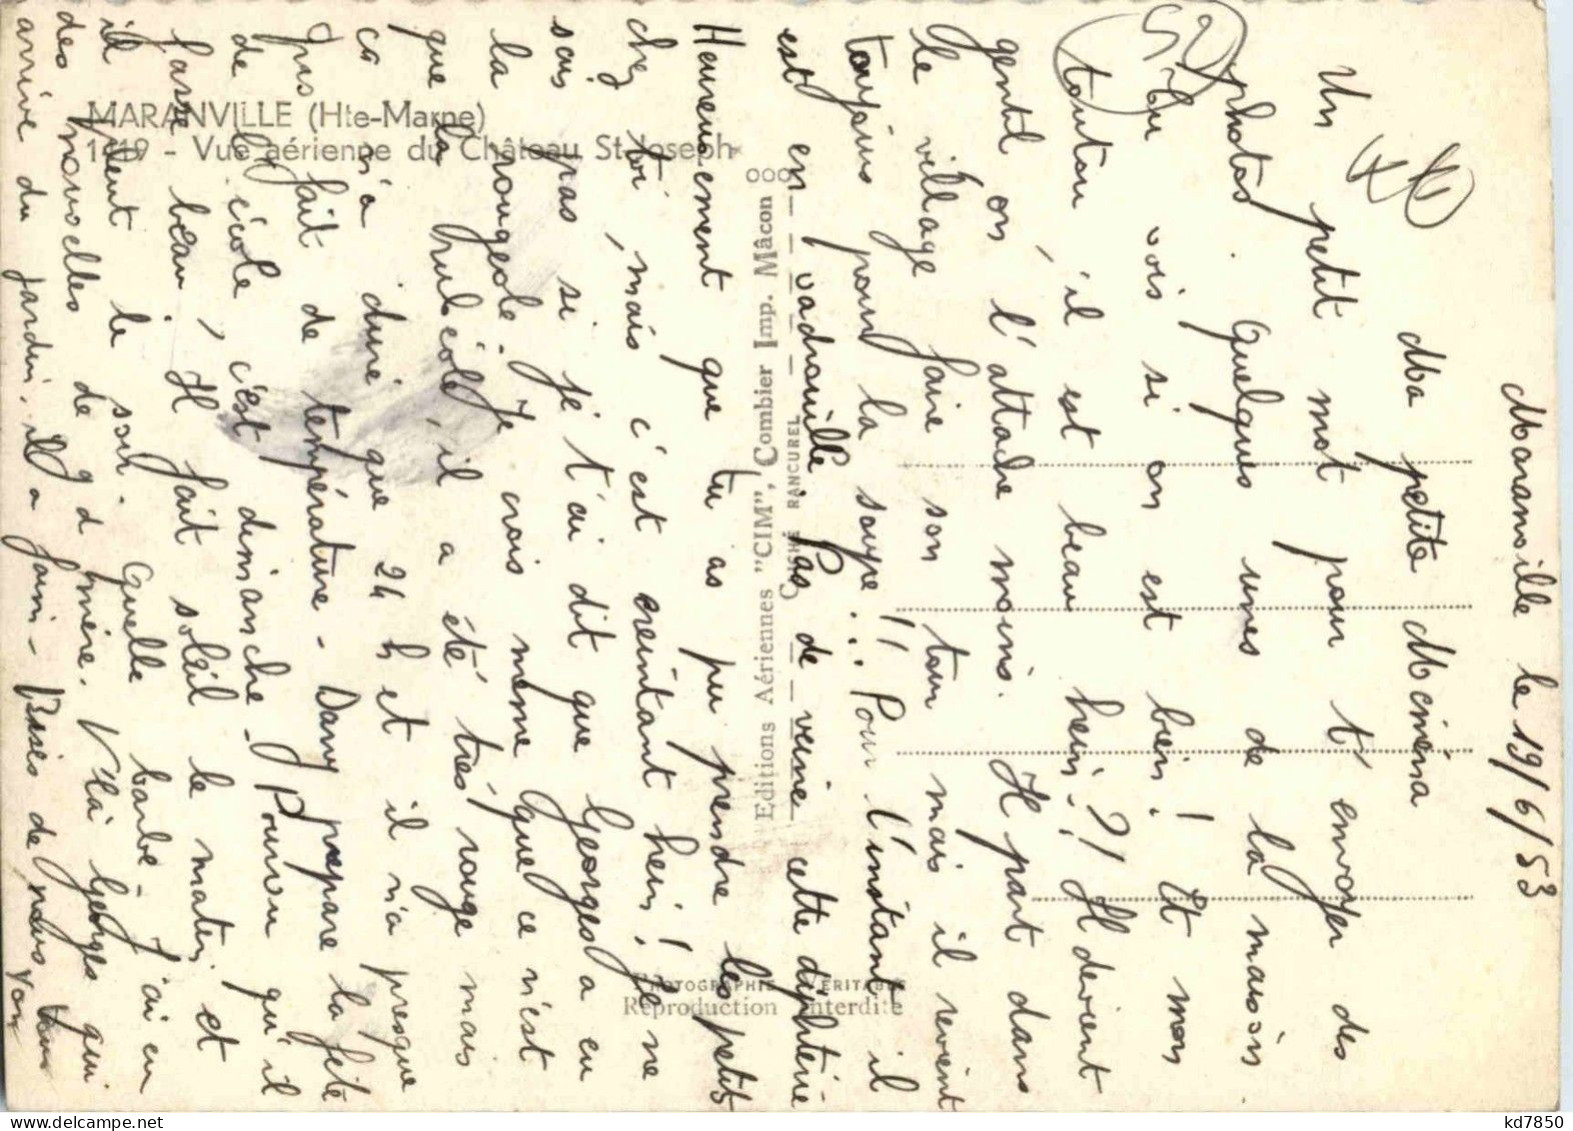 Maranville le 19/6/53
Ma petite Mémèna
Un petit mot pour t'envoyer des
photos. Quelques unes de la maison
tu vois si on est bien! Et mon
toutou, il est beau hein?! Il devient
gentil on l'attache moins. Il part dans
le village faire son tour mais il revient
toujours pour la soupe!! Pour l'instant il
est en vadrouille. Pas de veine cette diphtérie
Heureusement que tu as pu prendre les petits
chez toi, mais c'est éreintant hein! Je ne
sais pas si je t'ai dit que Georges a eu
la rougeole. Je crois même que ce n'est
que la rubéole, il a été très rouge mais
ça n'a duré que 24 h et il n'a presque
pas fait de température - Dany prépare la fête
de l'école, c'est dimanche - Pourvu qu'il
fasse beau, Il fait soleil le matin et
il pleut le soir. Quelle barbe - J'ai eu
des nouvelles de gd mère. V'là Georges qui
arrive du jardin, il a faim - Bises de nous tous
Yon
MARANVILLE (Hte-Marne)
1119 - Vue aérienne du Château St-Joseph
Editions Aériennes "CIM", Combier Imp. Mâcon
CLICHÉ RANCUREL
PHOTOGRAPHIE VÉRITABLE
Reproduction interdite
kd7850